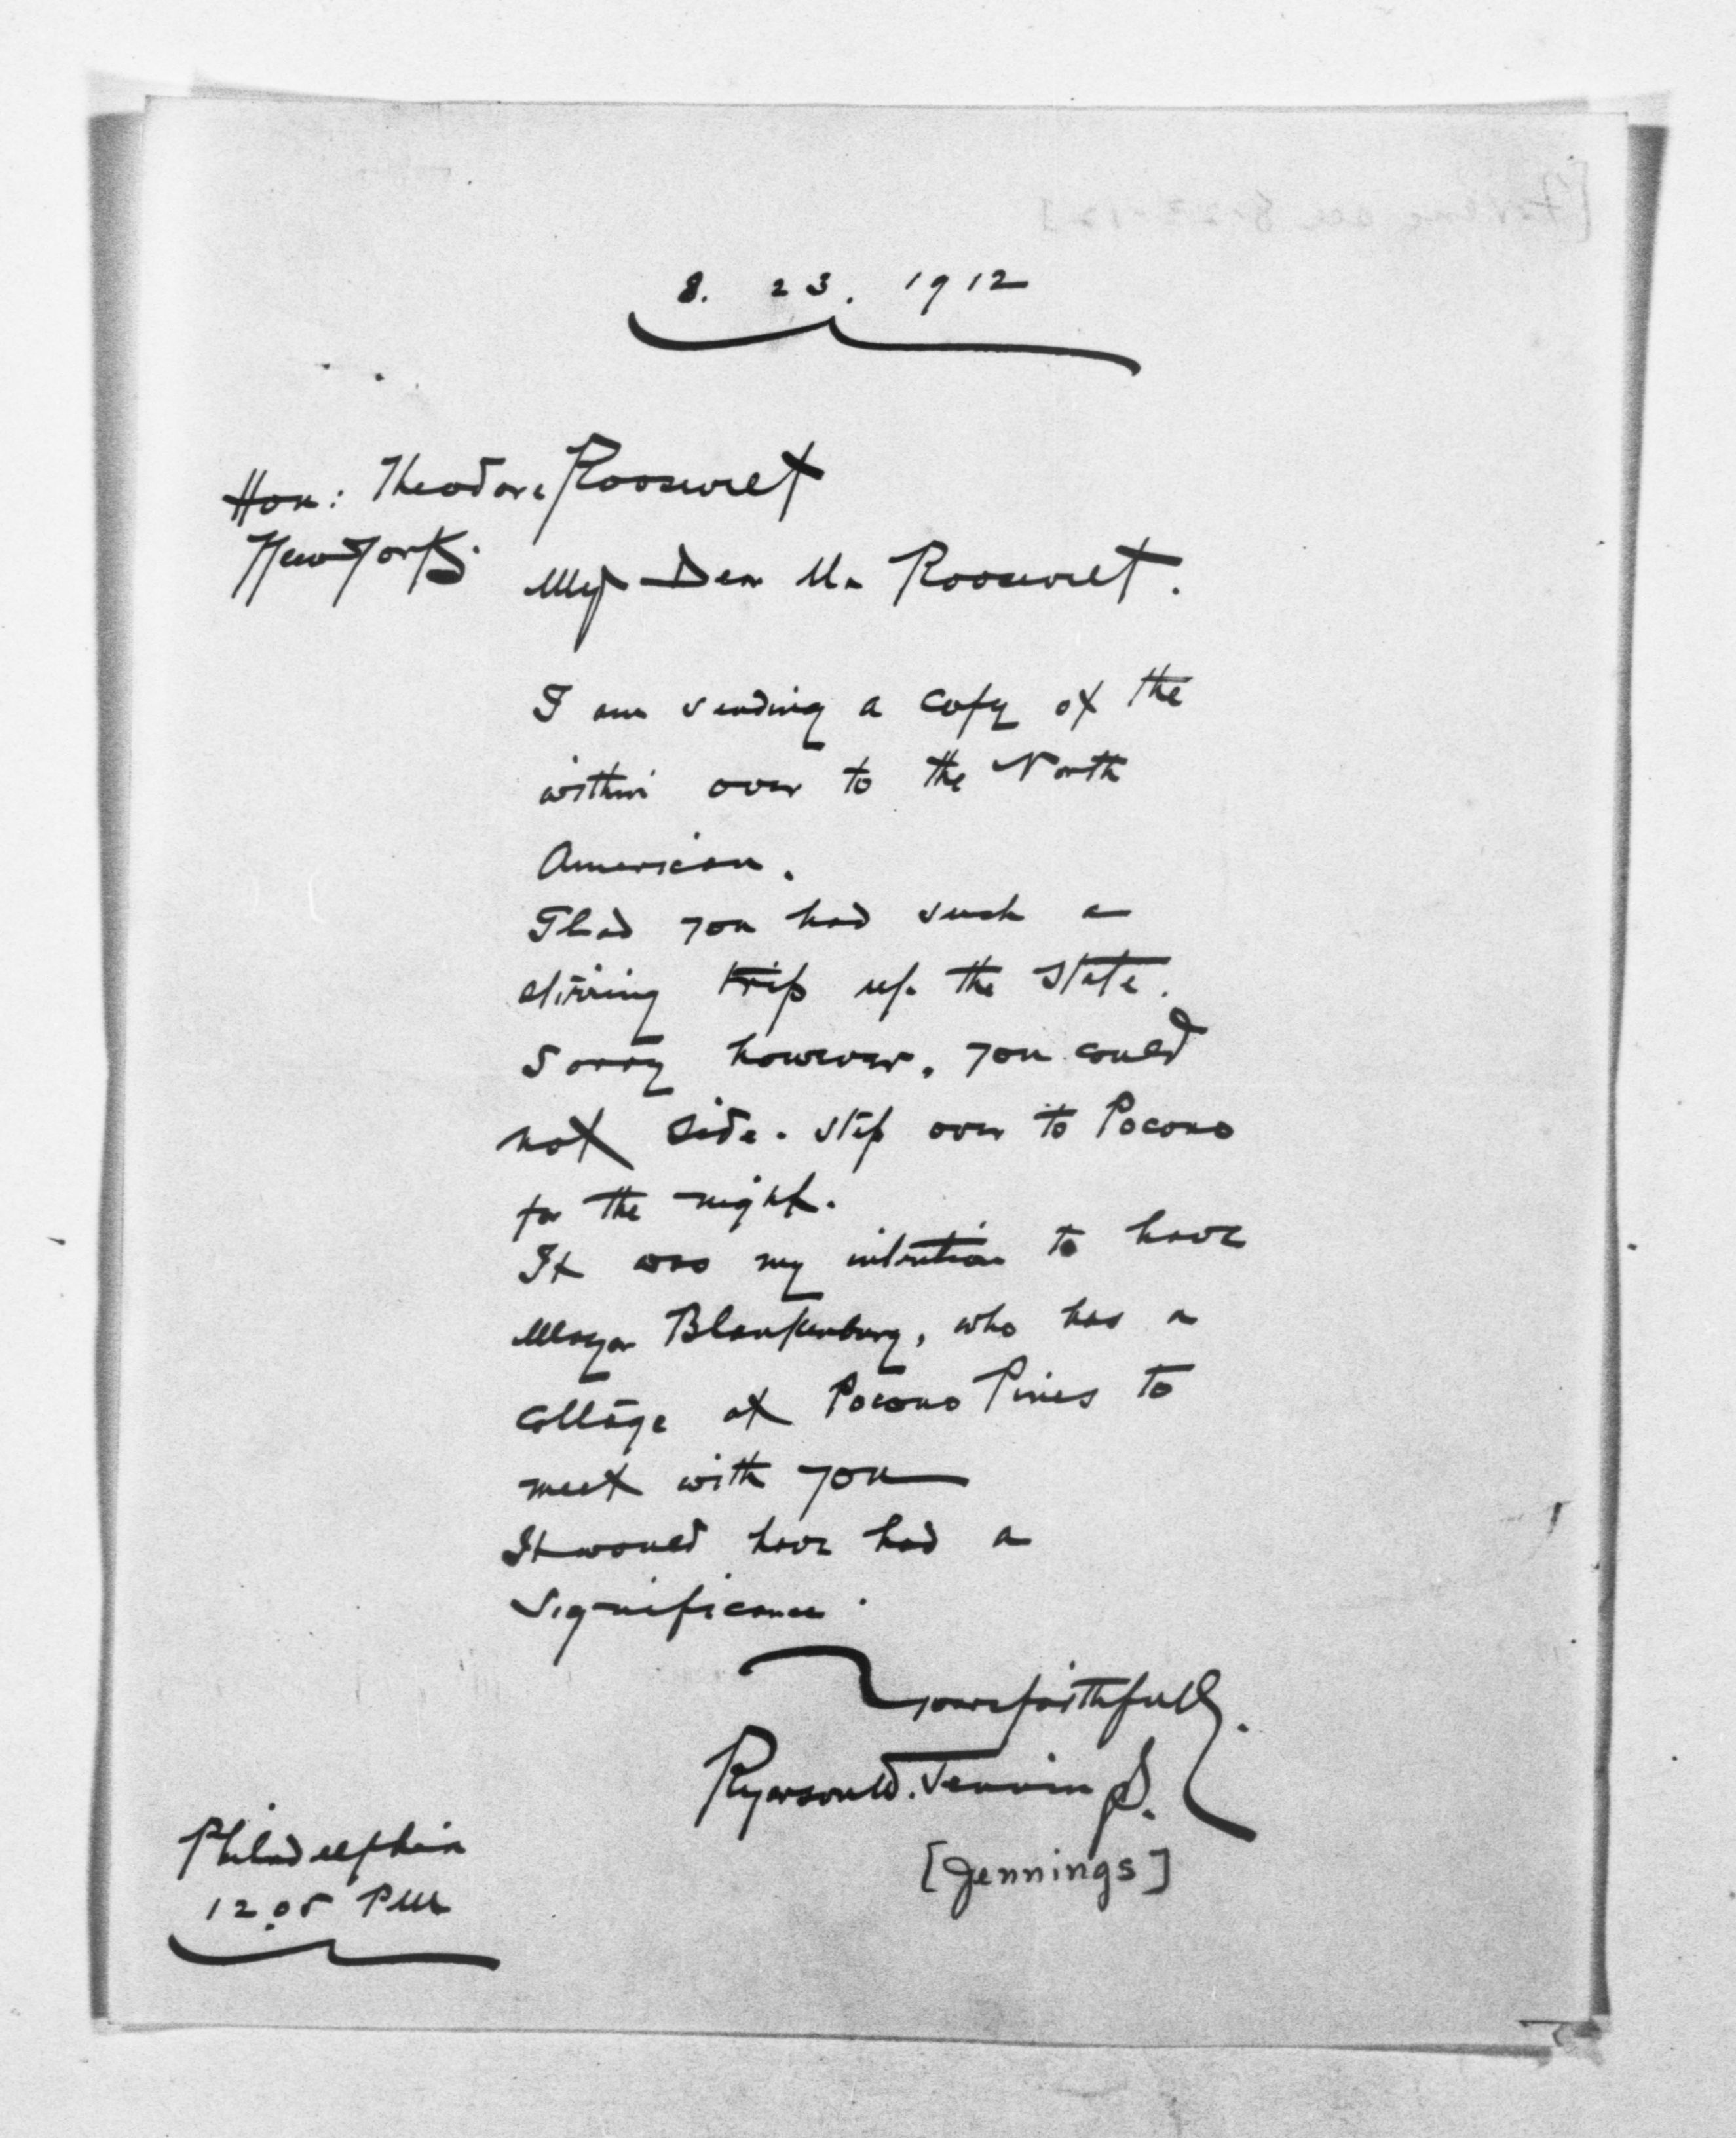 8. 23. 1912
Hon: Theodore Roosevelt
New York.
My Dear Mr Roosevelt.
I am sending a copy of the
within over to the North
American.
Glad you had such a
stirring trip up the State.
Sorry however, you could
not side-step over to Pocono
for the night.
It was my intention to have
Mayor Blankenburg, who has a
cottage at Pocono Pines to
meet with you
It would have had a
significance.
Yours faithfully.
Ryerson W. Jennings.
[Jennings]
Philadelphia
12.05 PM